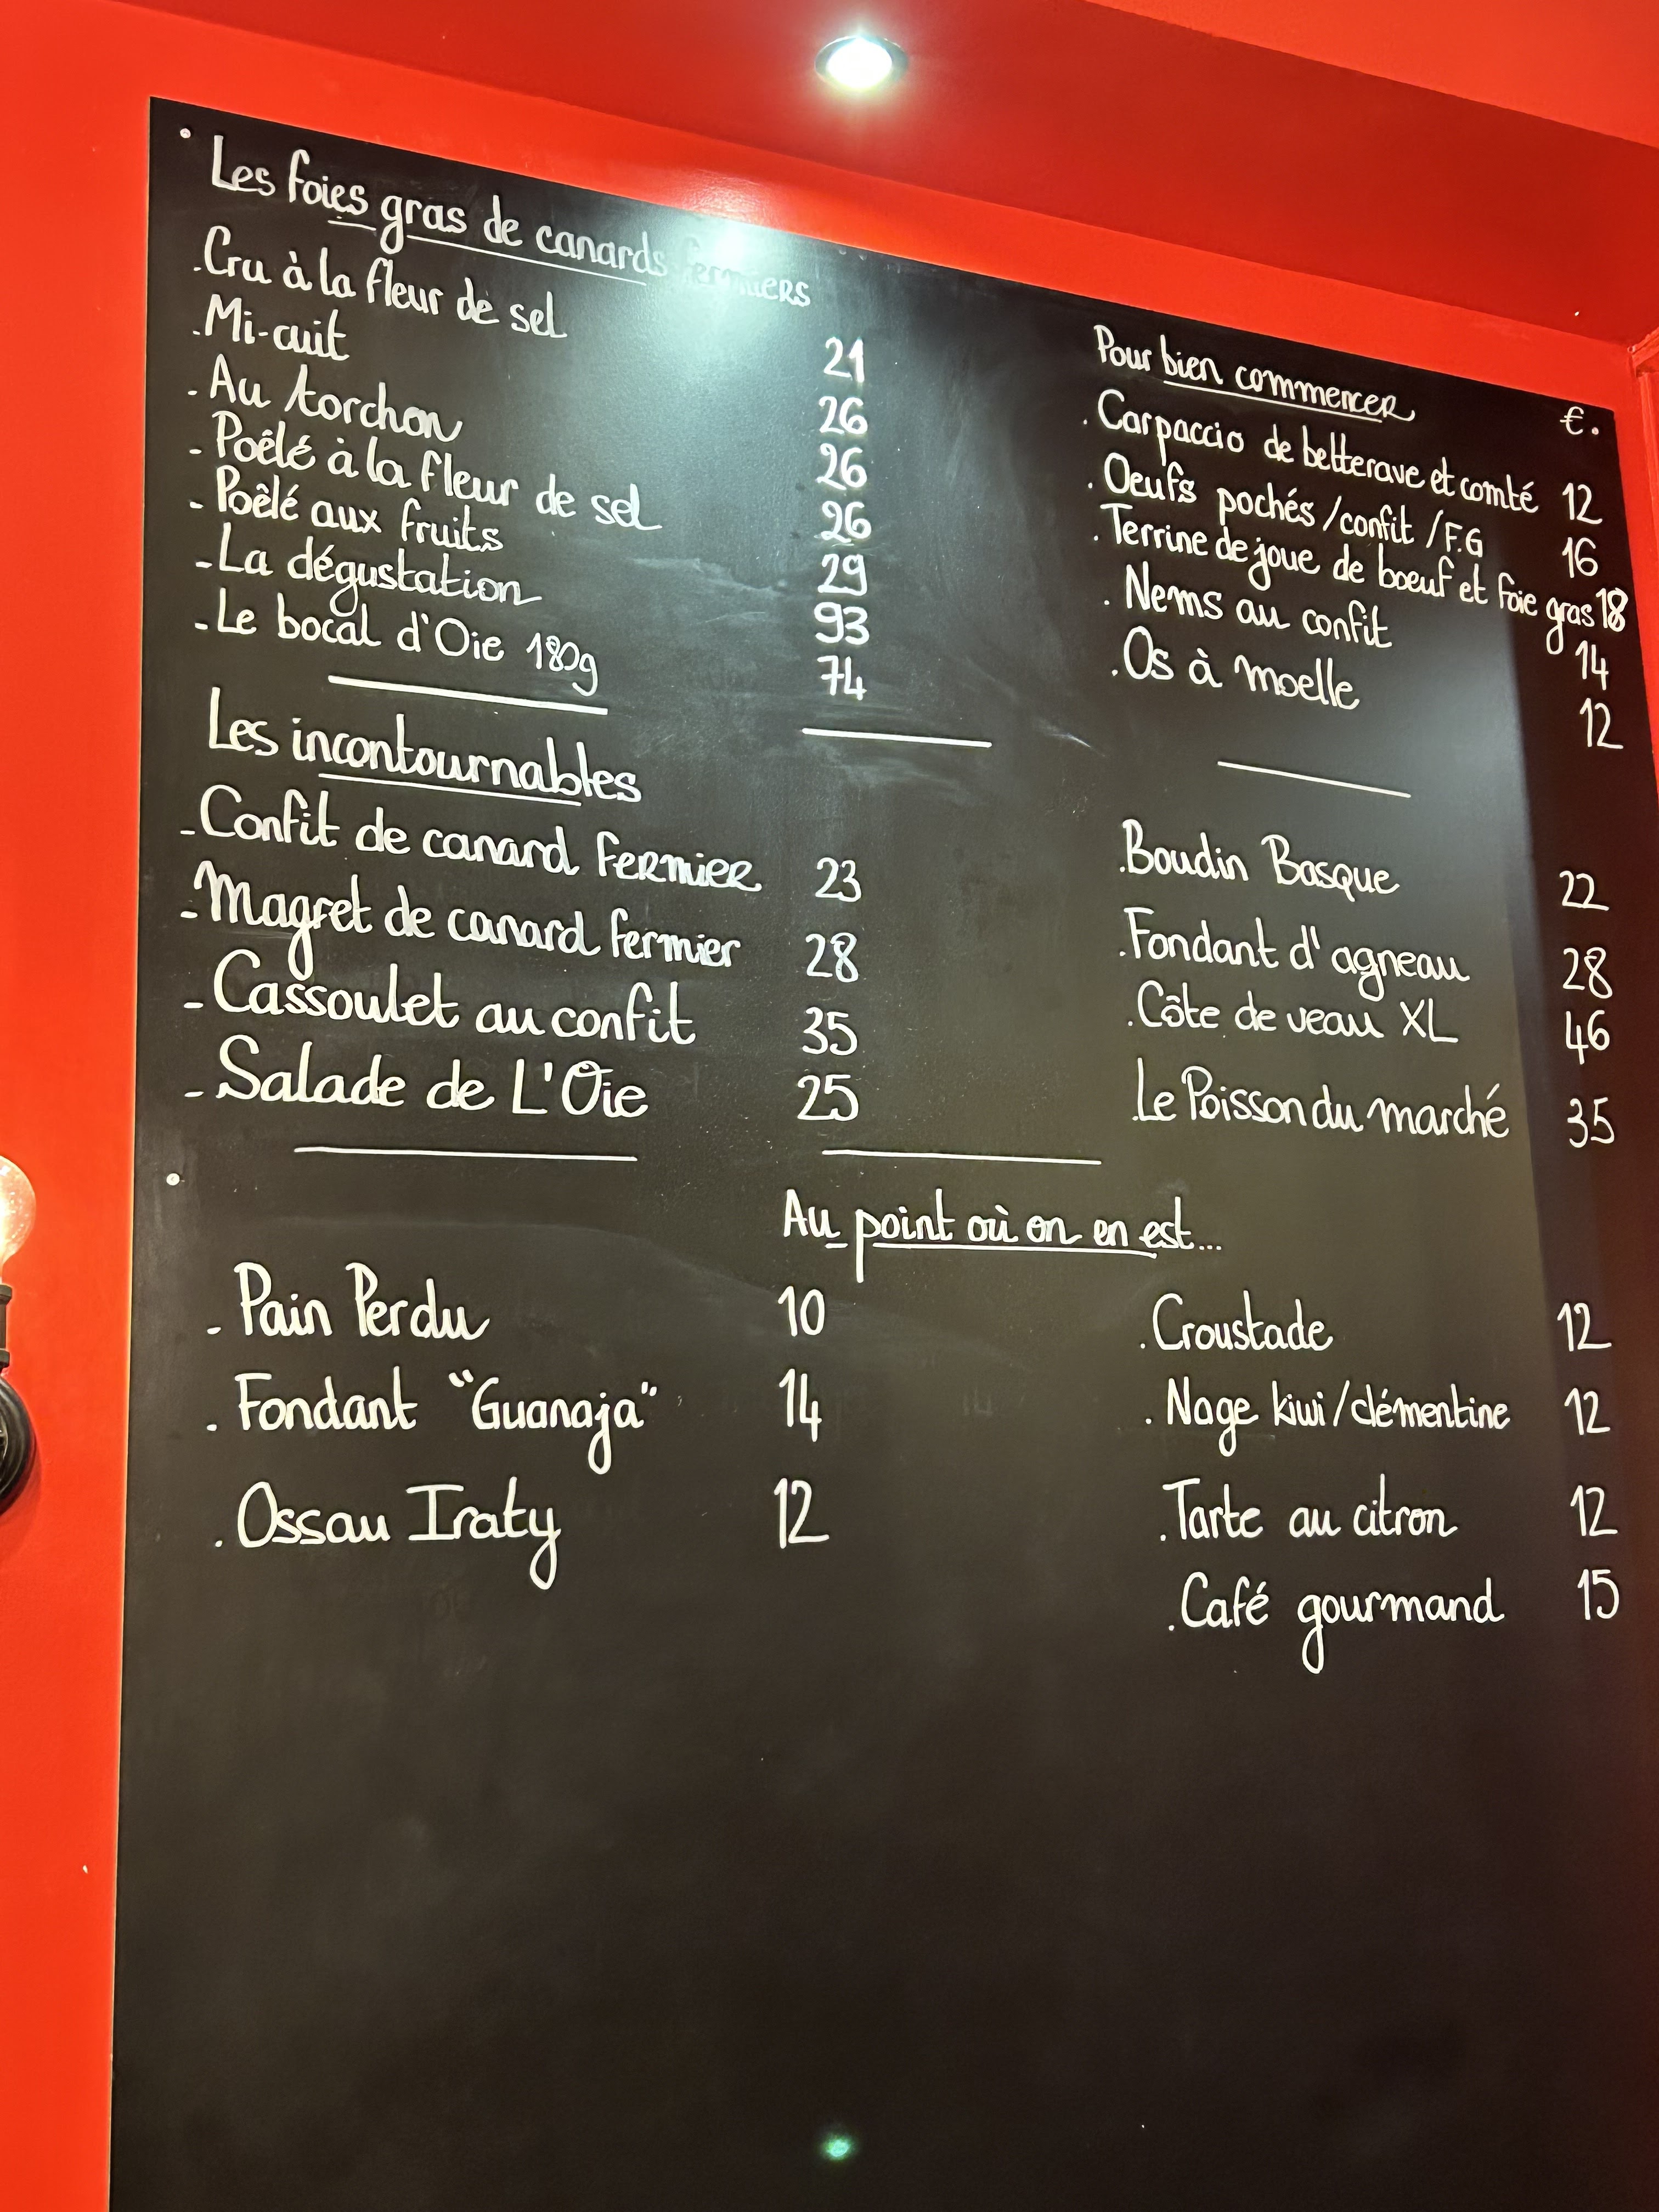 Les foies gras de canards fermiers
. Cru à la fleur de sel 21
. Mi-cuit 26
- Au torchon 26
- Poêlé à la fleur de sel 26
- Poêlé aux fruits 29
- La dégustation 93
- Le bocal d'Oie 180g 74
Pour bien commencer €.
. Carpaccio de betterave et comté 12
. Oeufs pochés / confit / F.G 16
. Terrine de joue de boeuf et foie gras 18
. Nems au confit 14
. Os à moelle 12
Les incontournables
- Confit de canard fermier 23
- Magret de canard fermier 28
- Cassoulet au confit 35
- Salade de L'Oie 25
. Boudin Basque 22
. Fondant d'agneau 28
. Côte de veau XL 46
. Le Poisson du marché 35
Au point où on en est...
- Pain Perdu 10
. Fondant "Guanaja" 14
. Ossau Iraty 12
. Croustade 12
. Nage kiwi / clémentine 12
. Tarte au citron 12
. Café gourmand 15